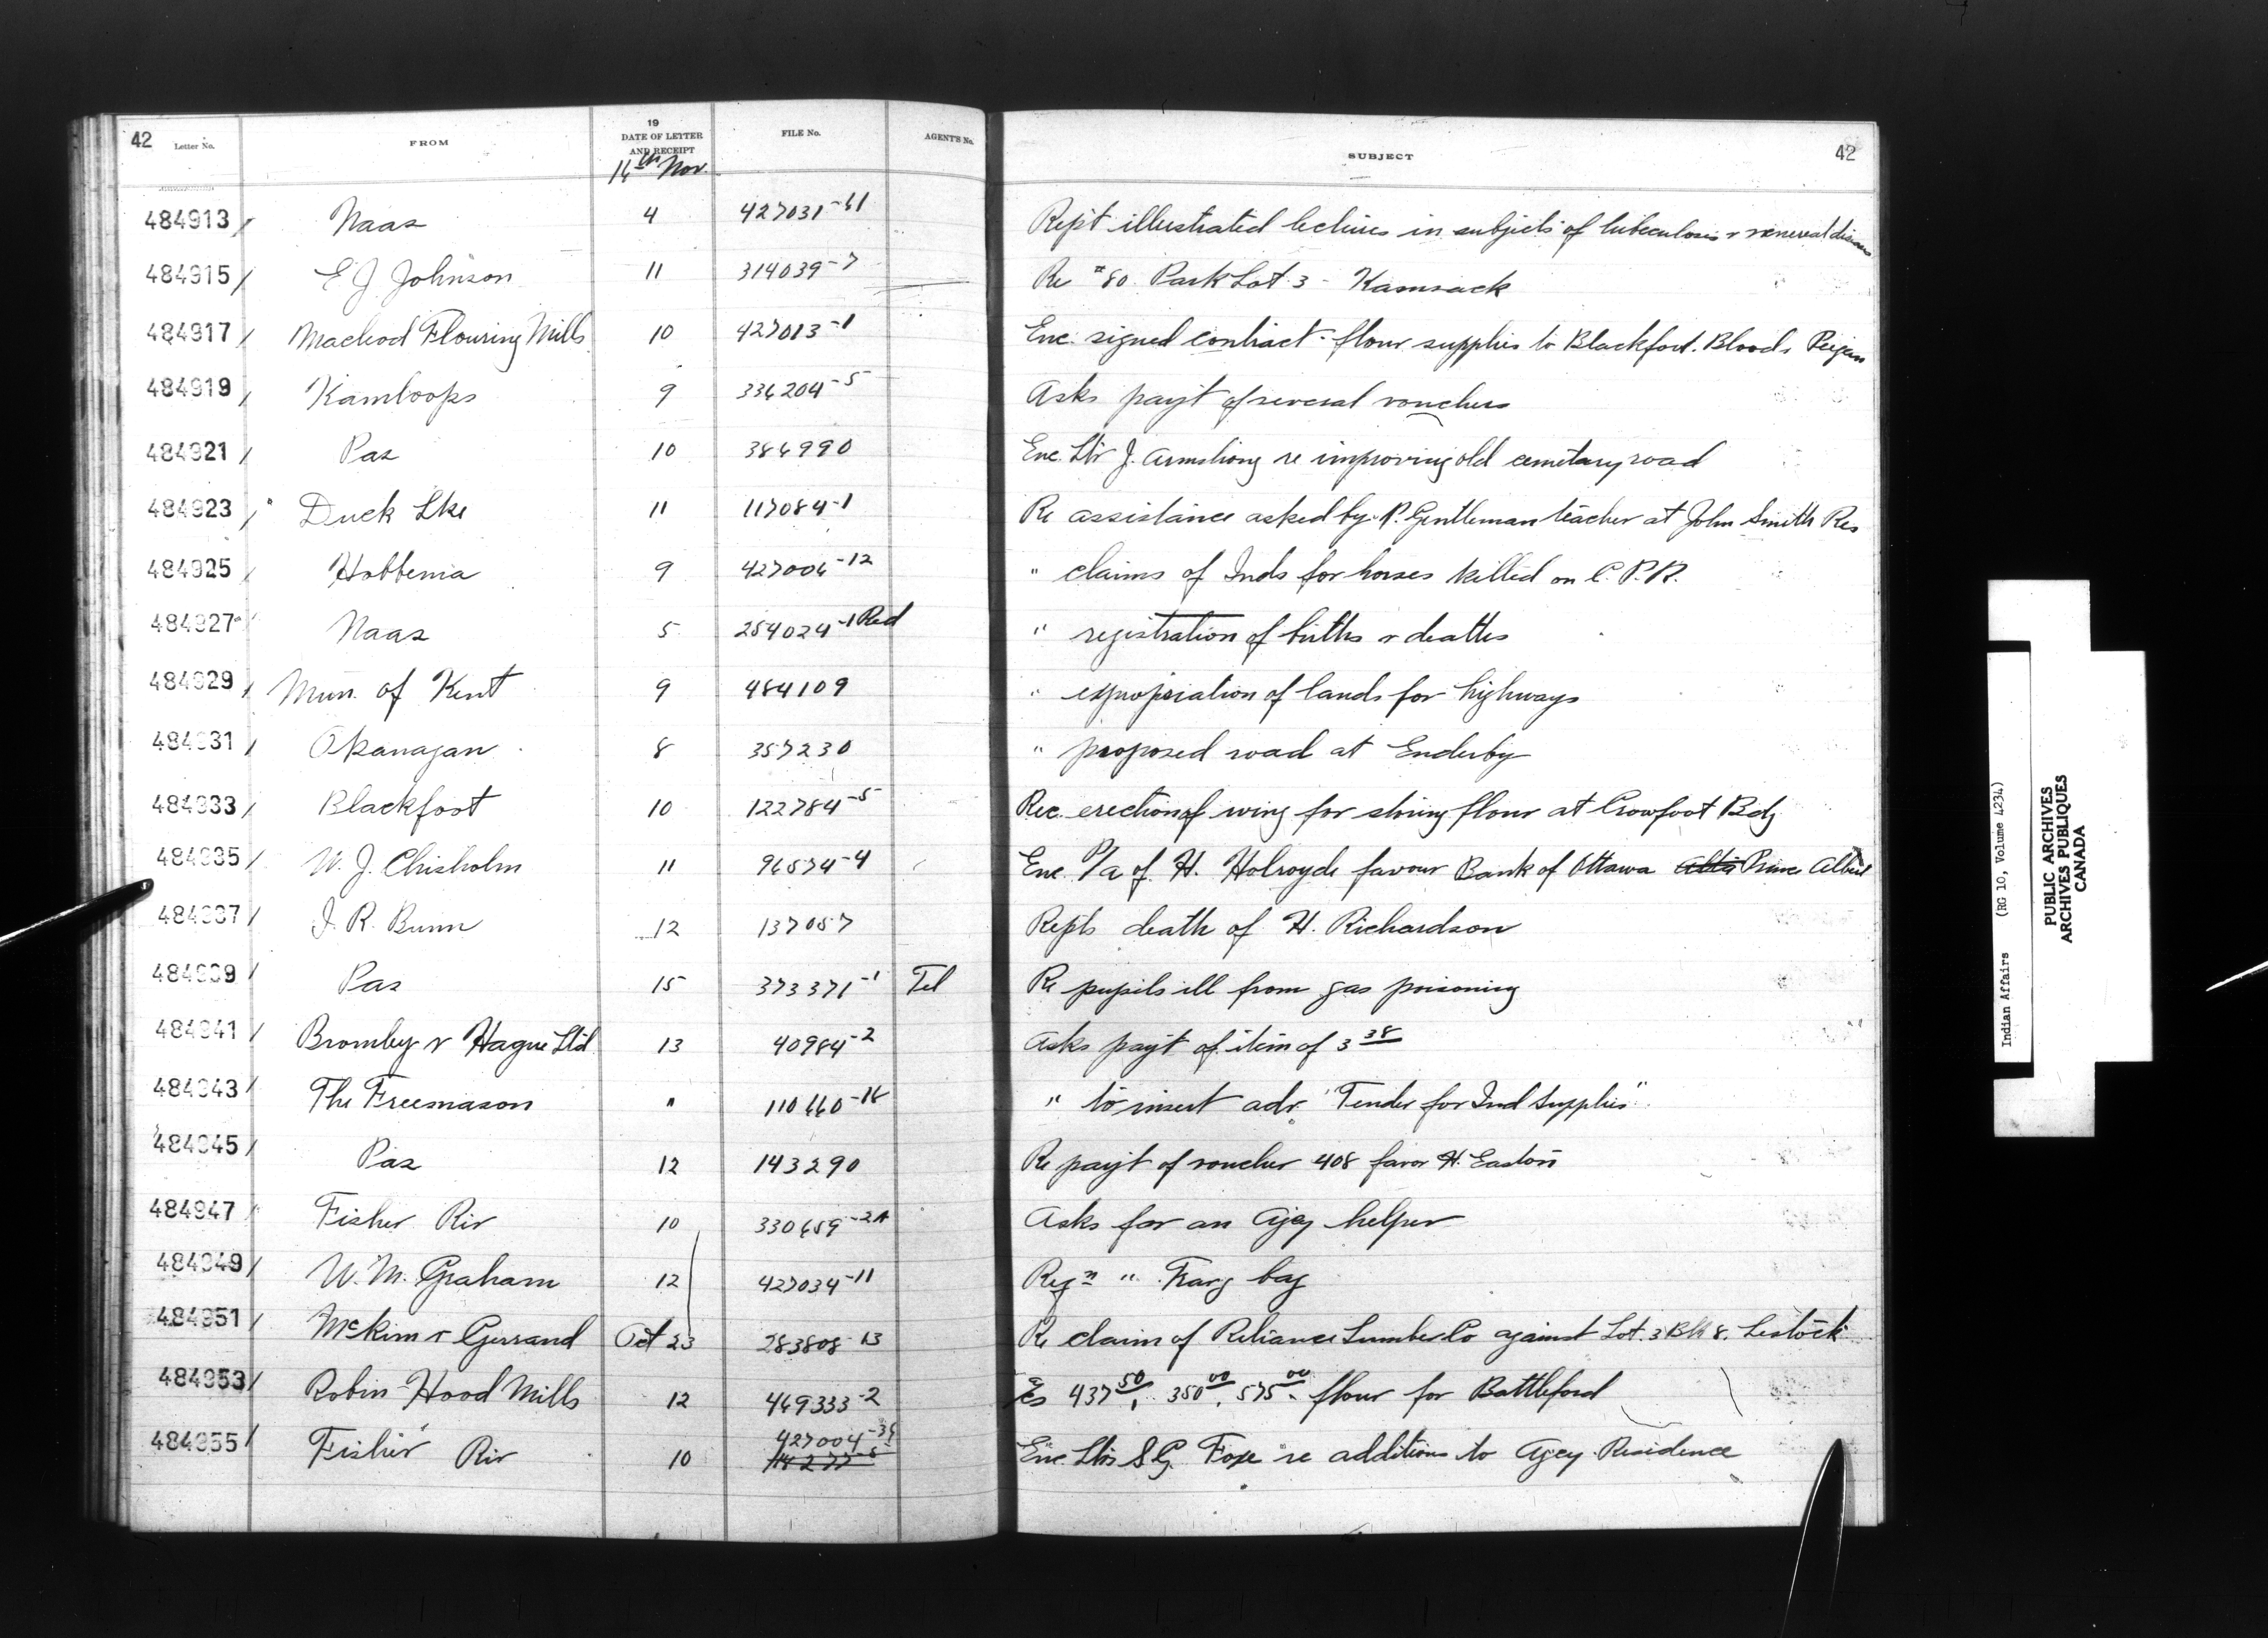 42
Letter No. FROM 19 DATE OF LETTER AND RECEIPT FILE No. AGENT'S No. SUBJECT 42
16th Nov.
484913 / Naas 4 427031-61 Rept illustrated lectures in subjects of tuberculosis & venereal diseases
484915 / E J. Johnson 11 314039-7 Re #80 Park Lot 3 - Kamsack
484917 / Macleod Flouring Mills 10 427013-1 Enc. signed contract - flour supplies to Blackfoot. Bloods Peigan
484919 / Kamloops 9 336204-5 Asks payt of several vouchers
484921 / Pas 10 386990 Enc. Ltr J. Armstrong re improving old cemetary road
484923 / Duck Lke 11 117084-1 Re assistance asked by P. Gentleman teacher at John Smith Res
484925 / Hobbema 9 427006-12 " claims of Inds for horses killed on C.P.R.
484927 / Naas 5 254024-1 Red " registration of births & deaths
484929 / Mun. of Kent 9 484109 " expropriation of lands for highways
484931 / Okanagan 8 357230 " proposed road at Enderby
484933 / Blackfoot 10 122784-5 Rec. erection of wing for storing flour at Crowfoot Bdg
484935 / W. J. Chisholm 11 96574-4 Enc. P/a of H. Holroyde favour Bank of Ottawa Alta Prince Albert
484937 / J. R. Bunn 12 137057 Repts death of H. Richardson
484939 / Pas 15 373371-1 Tel Re pupils ill from gas poisoning
484941 / Bromley & Hague Ltd. 13 40984-2 Asks payt of item of 3 38
484943 / The Freemason " 110660-16 " to insert adv. "Tender for Ind Supplies"
484945 / Pas 12 143290 Re payt of voucher 408 favor H. Easton
484947 / Fisher Riv 10 330659-2A Asks for an Agcy helper
484949 / W. M. Graham 12 427034-11 Reqn " Frang bag
484951 / McKim & Gerrand Oct 23 283808-13 Re claim of Reliance Lumber Co against Lot. 3 Blk 8. Lestock
484953 / Robin Hood Mills 12 469333-2 437 50, 350 00, 575 00 - flour for Battleford
484955 / Fisher Riv 10 427004-35 Enc. Ltrs S.G. Foxe re additions to Agcy Residence
Indian Affairs (RG 10, Volume 4234)
PUBLIC ARCHIVES
ARCHIVES PUBLIQUES
CANADA